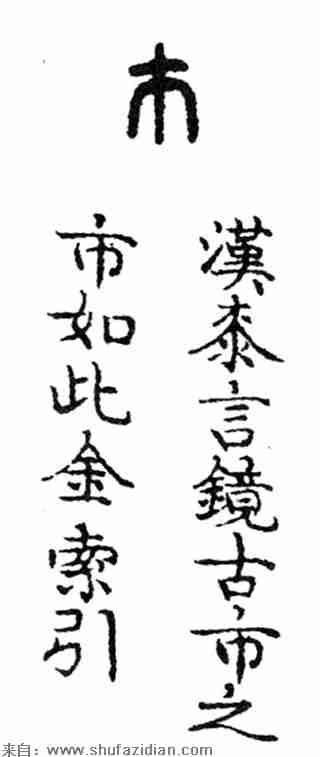 市
漢桼言鏡古市之
市如此金索引
来自：www.shufazidian.com